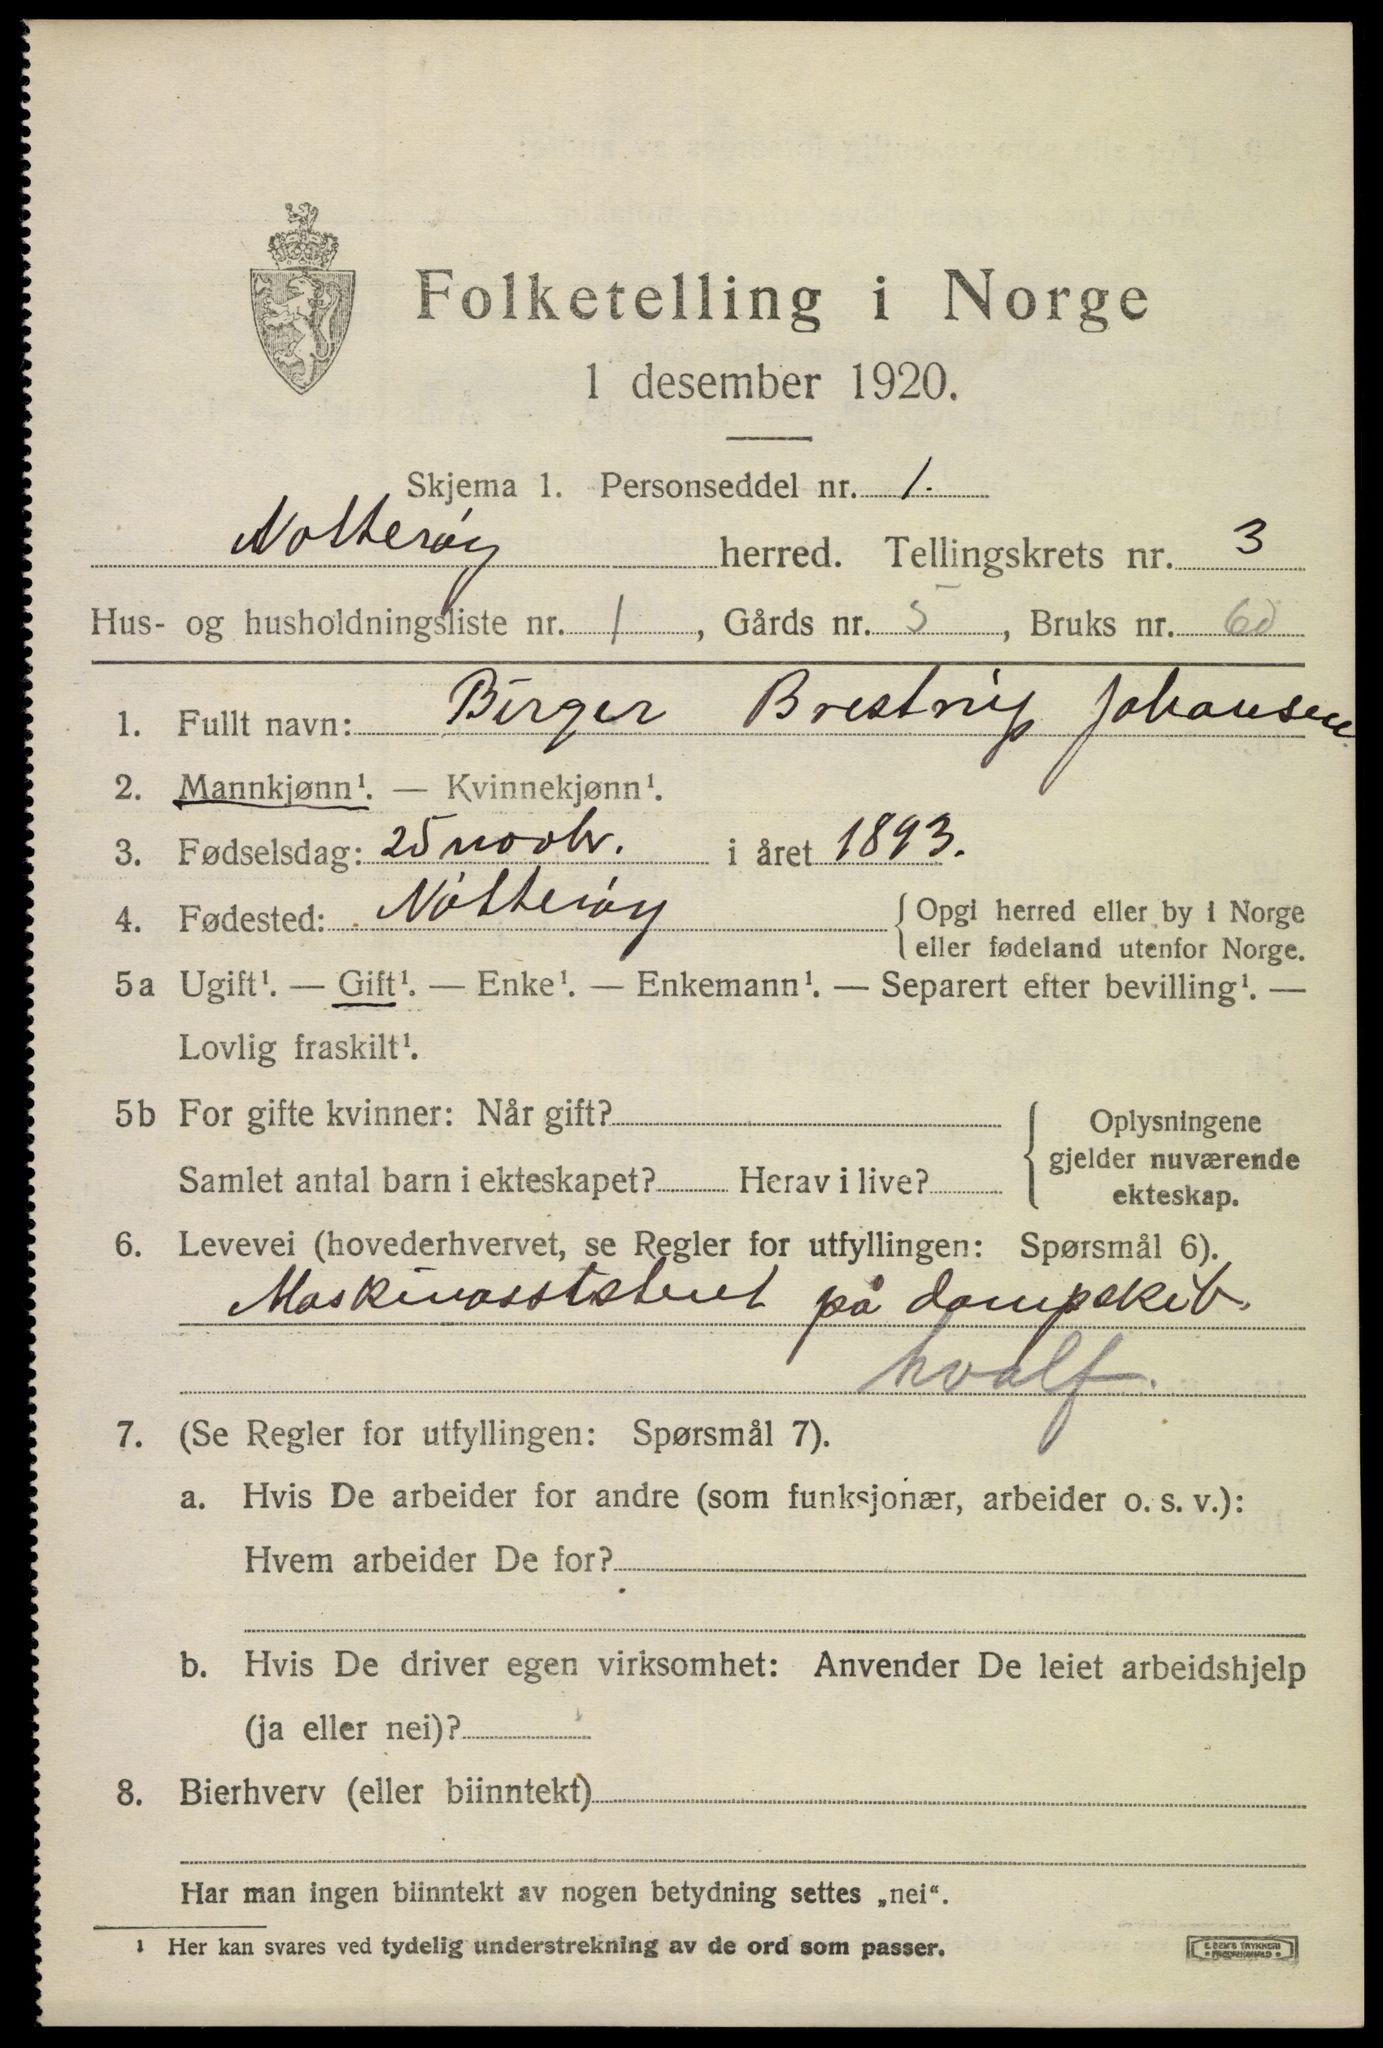 Folketelling i Norge
1 desember 1920.
Skjema 1. Personseddel nr. 1.
Nøtterøy herred. Tellingskrets nr. 3
Hus- og husholdningsliste nr. 1, Gårds nr. 5, Bruks nr. 60
1. Fullt navn: Birger Brestrup Johansen.
2. Mannkjønn¹. — Kvinnekjønn¹.
3. Fødselsdag: 25 novbr. i året 1893.
4. Fødested: Nøtterøy { Opgi herred eller by i Norge
eller fødeland utenfor Norge.
5a Ugift¹. — Gift¹. — Enke¹. — Enkemann¹. — Separert efter bevilling¹. —
Lovlig fraskilt¹.
5b For gifte kvinner: Når gift?
Samlet antal barn i ekteskapet? Herav i live?
Oplysningene
gjelder nuværende
ekteskap.
6. Levevei (hovederhvervet, se Regler for utfyllingen: Spørsmål 6).
Maskinassistent på dampskib.
hvalf.
7. (Se Regler for utfyllingen: Spørsmål 7).
a. Hvis De arbeider for andre (som funksjonær, arbeider o. s. v.):
Hvem arbeider De for?
b. Hvis De driver egen virksomhet: Anvender De leiet arbeidshjelp
(ja eller nei)?
8. Bierhverv (eller biinntekt)
Har man ingen biinntekt av nogen betydning settes „nei“.
¹ Her kan svares ved tydelig understrekning av de ord som passer.
E. SEM'S TRYKKERI
FREDRIKSHALD